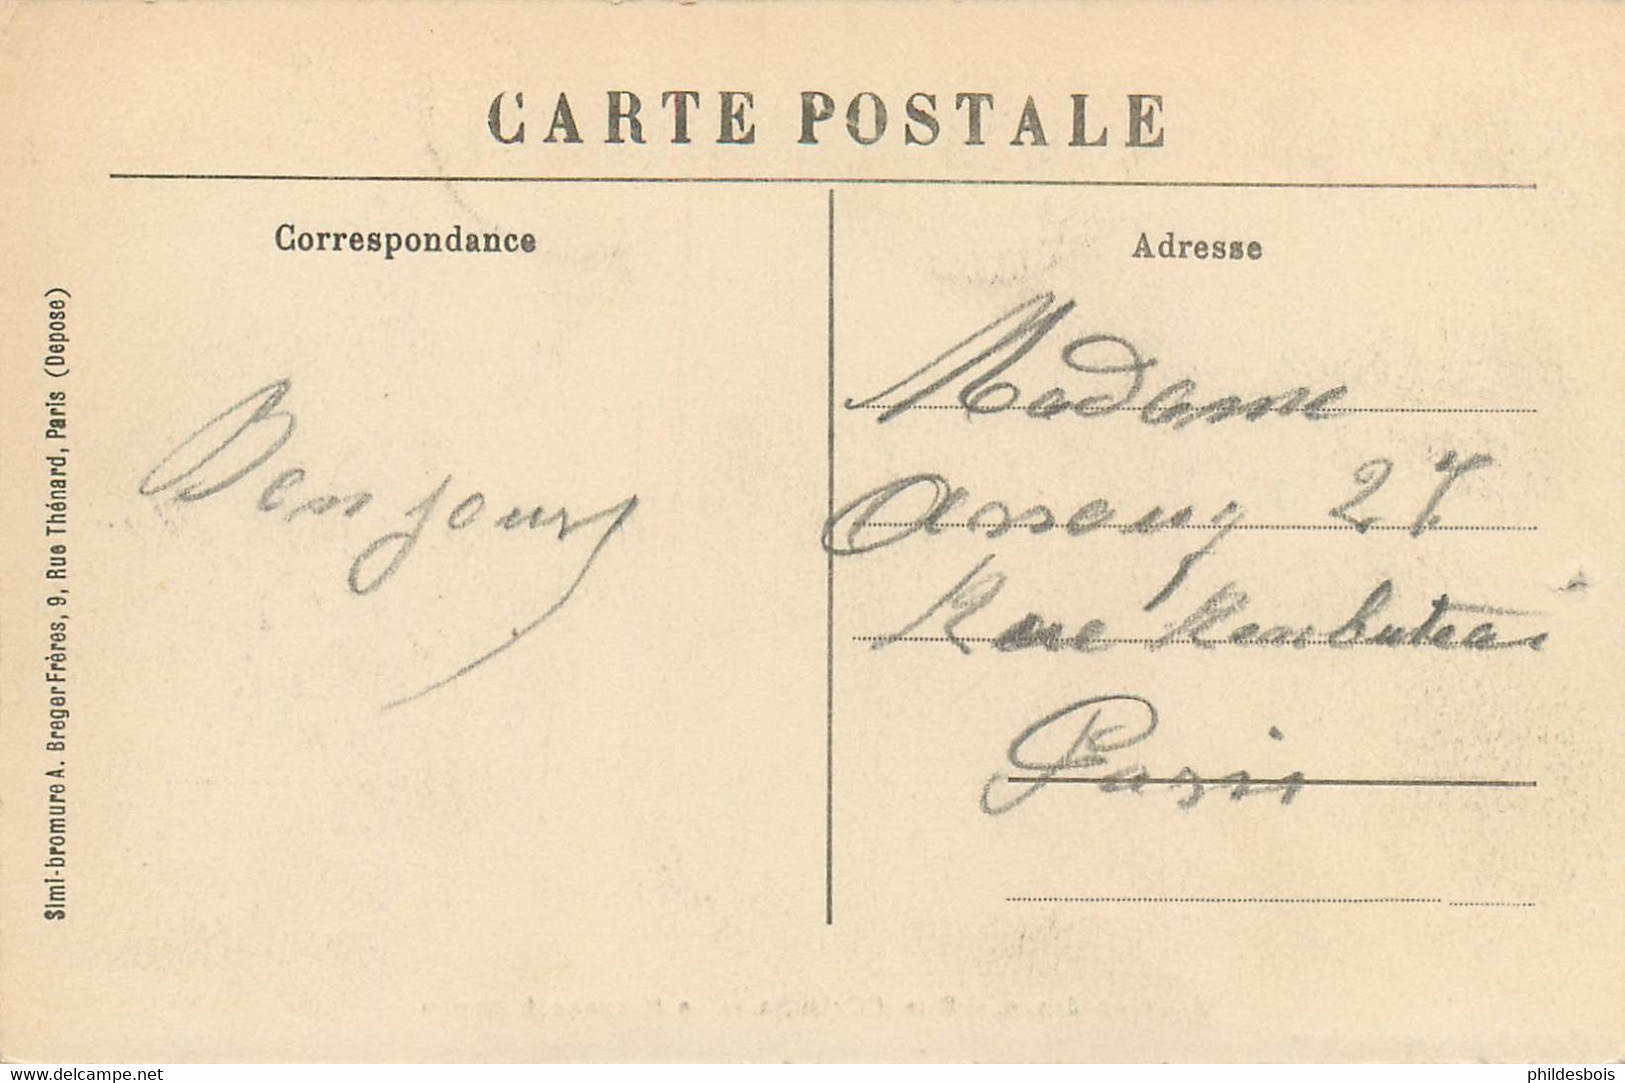 CARTE POSTALE
Correspondance
Adresse
Simi-bromure A. Breger Frères, 9, Rue Thénard, Paris (Depose)
Bonjour
Madame
27
Rue Rambuteau
Paris
delcampe.net
phildesbois